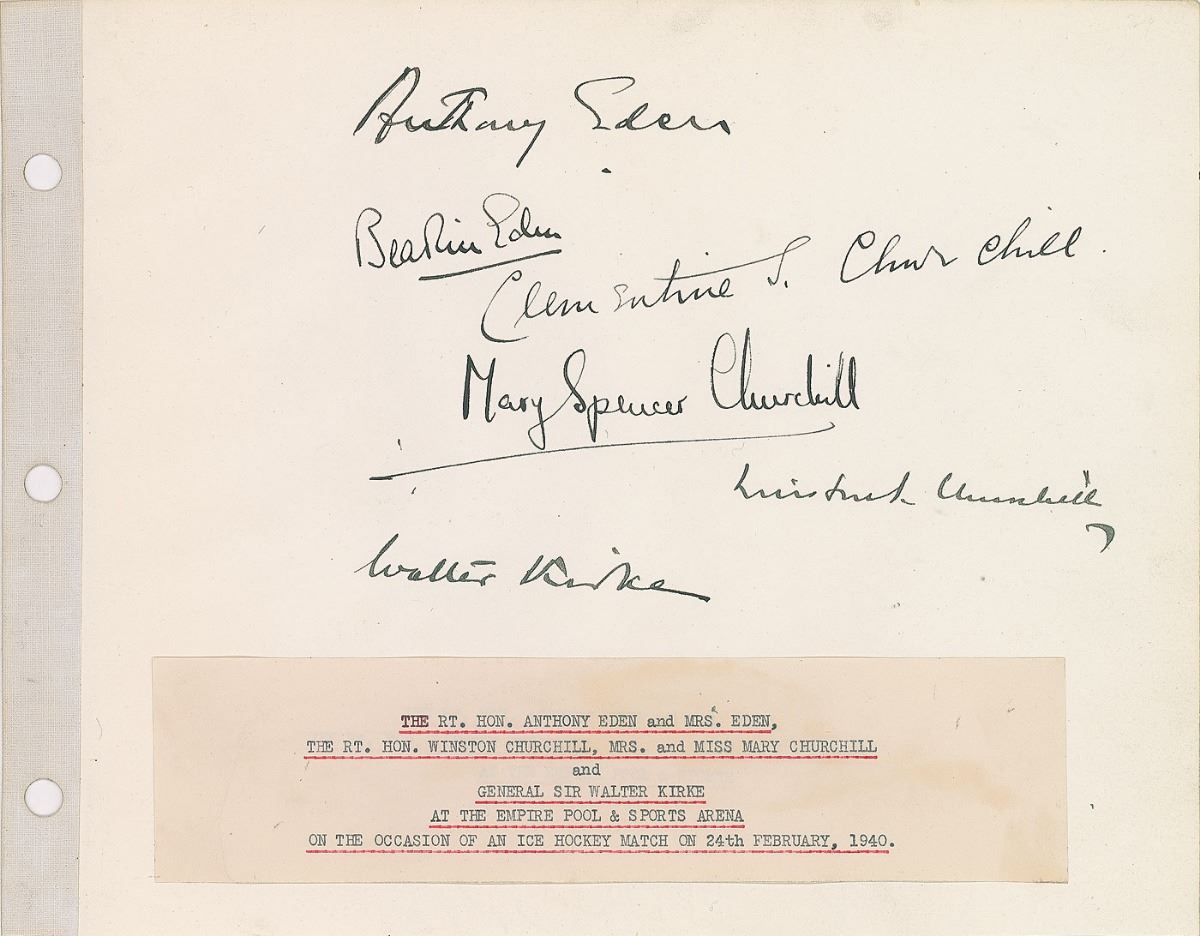 Anthony Eden
Beatrice Eden
Clementine S. Churchill.
Mary Spencer Churchill
Winston S. Churchill
Walter Kirke
THE RT. HON. ANTHONY EDEN and MRS. EDEN,
THE RT. HON. WINSTON CHURCHILL, MRS. and MISS MARY CHURCHILL
and
GENERAL SIR WALTER KIRKE
AT THE EMPIRE POOL & SPORTS ARENA
ON THE OCCASION OF AN ICE HOCKEY MATCH ON 24th FEBRUARY, 1940.